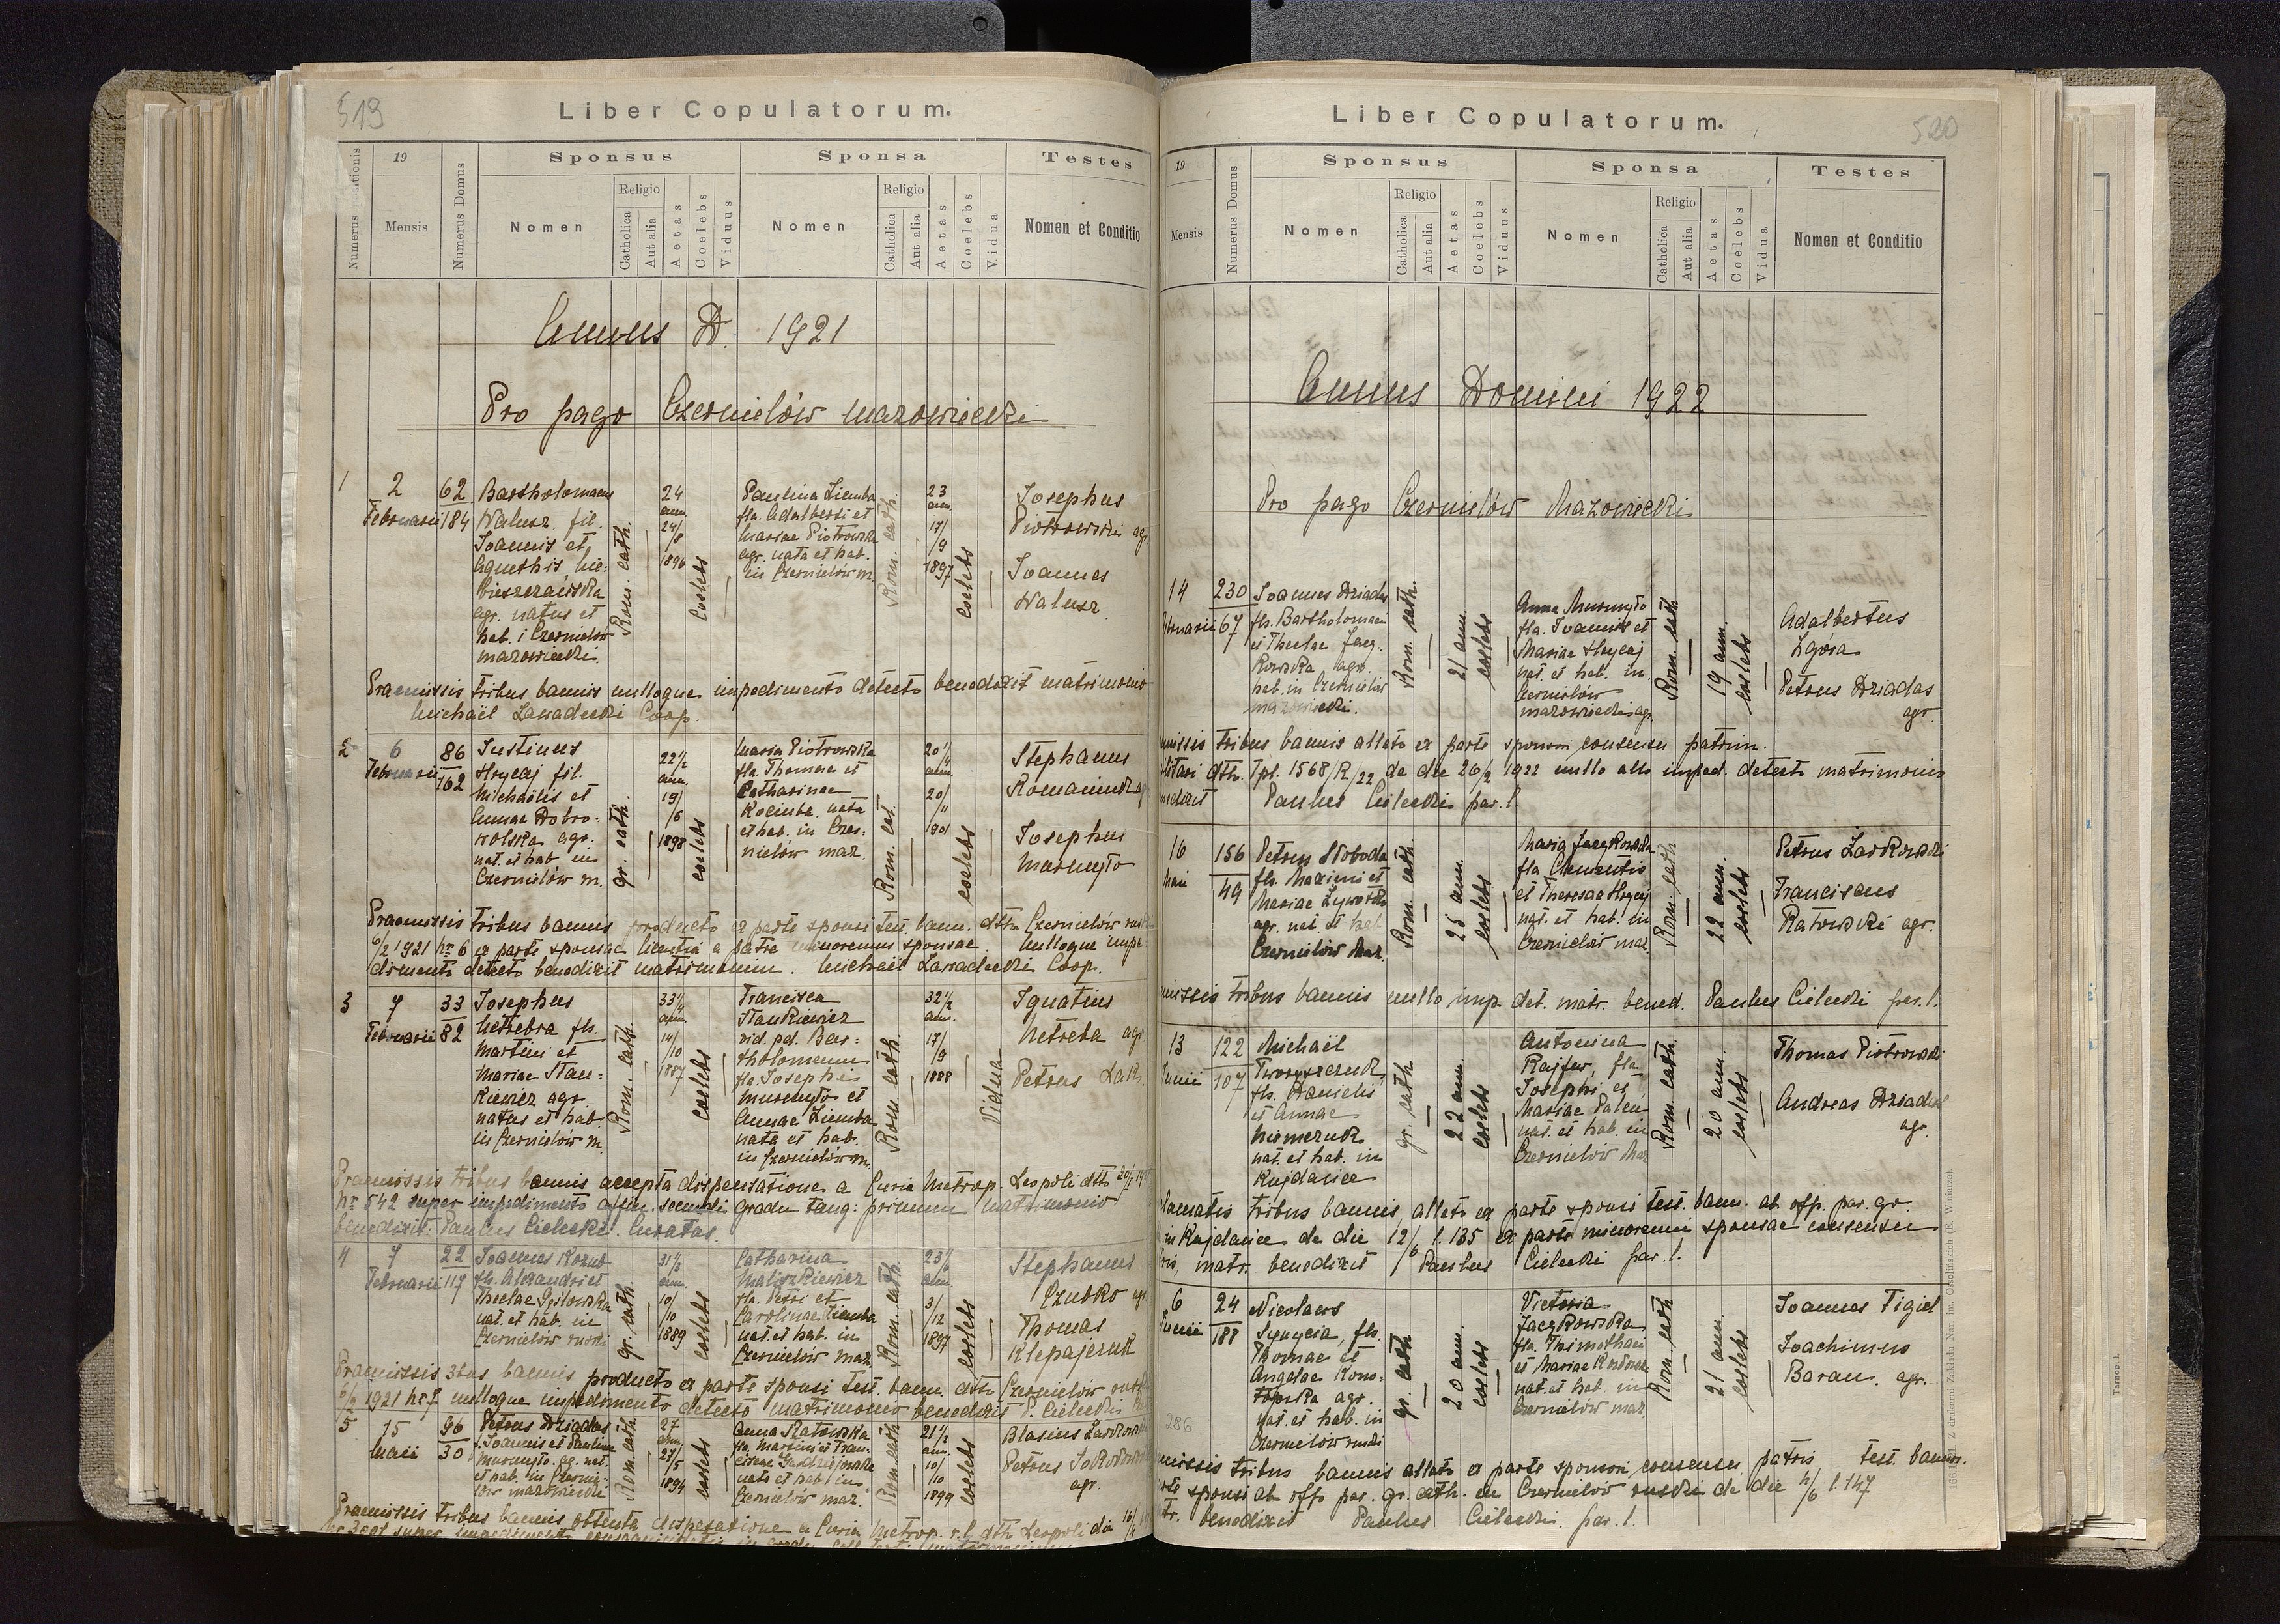 519
Liber Copulatorum.
19
Mensis
Numerus Domus
Sponsus
Sponsa
Testes
Nomen
Religio
Catholica
Aut alia
Aetas
Coelebs
Viduus
Nomen
Religio
Catholica
Aut alia
Aetas
Coelebs
Vidua
Nomen et Conditio
Annus D. 1921
Pro pago Czernielów mazowiecki
1
2
Februarii
62
184
Bartholomaeus
Walusz fil.
Joannis et
agr. natus et
hab. i Czernielów
mazowiecki.
Rom. cath.
24
ann.
24/
8
1896
coelebs
Paulina Ziemba
fla. Adalberti et
Mariae Piotrowska
agr. nata et hab.
in Czernielów m.
Rom. cath.
23
ann.
17/
9
1897
coelebs
Josephus
Piotrowski agr.
Joannes
Walusz
Praemissis tribus bannis nulloque impedimento detecto benedixit matrimonio
Michaël Zawadecki Coop.
2
6
Februarii
86
162
Justinus
Hrycaj fil.
Michaëlis et
Annae Dobro:
wolska agr.
nat. et hab in
Czernielów m.
gr. cath.
22 1/2
ann.
19/
6
1898
coelebs
Maria Piotrowska
fla. Thomae et
Catharinae
Kociuba nata
et hab. in Czer:
nielów maz.
Rom. cat.
20 1/4
ann.
20/
11
1901
coelebs
Stephanus
Romaniuk ag
Josephus
Mormyto
Praemissis tribus bannis producto ex parte sponsi test. bann. dtto Czernielów rus
6/2 1921 nr 6 ex parte sponsae licentia a patre minorennis sponsae. Nulloque impe:
dimento detecto benedixit matrimonium. Michaël Zawadecki Coop.
3
7
Februarii
33
82
Josephus
Netreba fls.
Martini et
Mariae Stan:
kiewicz agr.
natus et hab.
in Czernielów m.
Rom. cath.
33 1/4
ann.
14/
10
1887
coelebs
Francisca
Stankiewicz
vid. pd. Bar:
tholomeum
fla. Josephi
Murmyto et
Annae Ziemba
nata et hab.
in Czernielów m.
Rom. cath.
32 1/2
ann.
17/
9
1888
Vidua
Ignatius
Netreba agr
Petrus Lak.
Praemissis tribus bannis accepta dispensatione a Curia Metrop. Leopoli dtto 20/1 19
nr 542 super impedimento affin. secundi gradu tang: primum matrimonio
benedixit Paulus Cielecki Curatus.
4
7
Februarii
22
117
Joannes Kozub
fls. Alexandri et
Theclae
nat. et hab. in
Czernielów ruski
gr. cath.
31 1/3
ann.
10/
10
1889
coelebs
Catharina
Maliszkiewicz
fla. Petri et
Carolinae Ziemba
nat. et hab. in
Czernielów maz.
Rom. cath.
23 1/6
ann.
3/
12
1897
coelebs
Stephanus
Czubko agr
Thomas
Klepajczuk
Praemissis 3bus bannis producto ex parte sponsi test. bann. dtto Czernielów rus
6/2 1921 nr 7 nulloque impedimento detecto matrimonio benedixit P. Cielecki
5
15
Maii
96
30
Petrus Dziadas
f. Joannis et Paulina
Murmyto. ag. nat.
et hab. in Czernie:
lów mazowiecki
Rom. cath
27
ann.
23/
5
1894
coelebs
Anna Ratowska
fla. Martini et Fran:
ciscae
nata et hab. in
Czernielów maz.
Rom. cath
21 1/2
ann.
10/
10
1899
coelebs
Blasius Zarkows
Petrus
agr.
Praemissis tribus bannis obtenta dispensatione a Curia Metrop. r. l. dtto Leopoli die
520
Liber Copulatorum.
19
Mensis
Numerus Domus
Sponsus
Sponsa
Testes
Nomen
Religio
Catholica
Aut alia
Aetas
Coelebs
Viduus
Nomen
Religio
Catholica
Aut alia
Aetas
Coelebs
Vidua
Nomen et Conditio
Annus Domini 1922
Pro pago Czernielów Mazowiecki
14
230
67
Joannes Dziadas
fls. Bartholomaei
et Theclae Jacz.
kowska agr.
hab. in Czernielów
mazowiecki.
Rom. cath.
21 ann.
coelebs
Anna Murmyto
fla. Joannis et
Mariae Hrycaj
nat. et hab. in
Czernielów
mazowiecki agr.
Rom. cath
19 ann.
coelebs
Adalbertus
Zgóra
Petrus Dziadas
agr.
missis tribus bannis allato ex parte sponsi consensu patrim.
dtto. Tpl. 1568/R/22 de die 26/2 1922 nullo alio imped. detecto matrimonium
nedixit Paulus Cielecki par. l.
16
Maii
156
49
Petrus Słoboda
fls. Maximi et
Mariae
agr. nat. et hab
Czernielów Maz.
Rom. cath.
25 ann.
coelebs
Maria Jaczkowska
fla Clementis
et Theresae Hrycaj
nat. et hab. in
Czernielów maz.
Rom. cath
22 ann.
coelebs
Petrus Zarkowski
Franciscus
Ratowski agr.
missis tribus bannis nullo imp. det. matr. bened. Paulus Cielecki par. l.
13
Junii
122
107
Michaël
fls. Danielis
et Annae
Niemczuk
nat. et hab. in
Kujdanice
gr. cath
22 ann.
coelebs
Antonina
Rajfer, fla
Josephi et
Mariae
nat. et hab. in
Czernielów Maz
Rom. cath.
20 ann.
coelebs
Thomas Piotrowski
Andreas Dziadas
agr.
lamatis tribus bannis allato ex parte sponsi test. bann. ab off. par. gr.
in Kujdanice de die 12/6 l. 135 ex parte minorennis sponsae consensu
tris, matr. benedixit Paulus Cielecki par. l.
6
Junii
24
188
Nicolaus
fls.
Thomae et
Angelae Kono:
agr.
nat. et hab. in
Czernielów ruski
gr. cath
20 ann.
coelebs
Victoria
Jaczkowska
fla. Thimothaei
et Mariae
nat. et hab. in
Czernielów maz.
Rom. cath
21 ann.
coelebs
Joannes Figiel
Joachimus
Baran. agr.
286
missis tribus bannis allato ex parte sponsi consensu patris test. bann.
sponsi ab offo par. gr. cth. in Czernielów ruski de die 4/6 l. 147
benedixit Paulus Cielecki par. l.
Tarnopol.